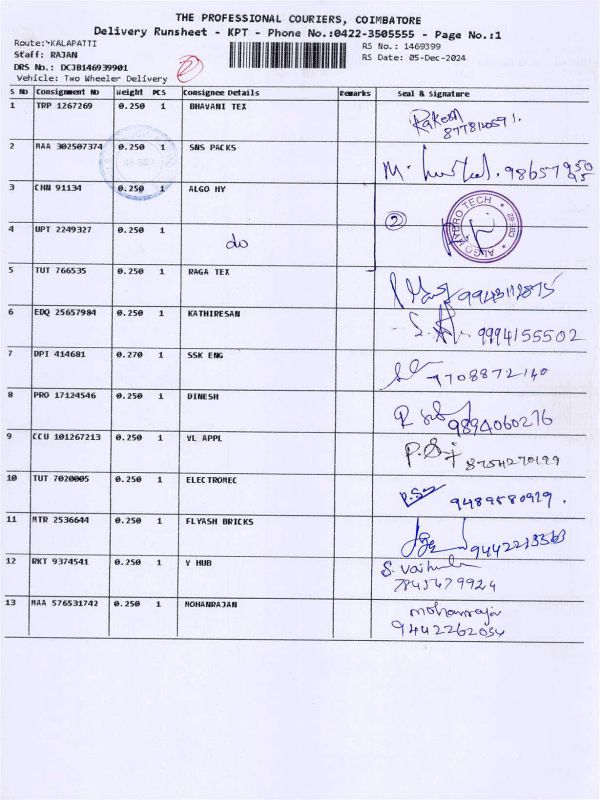 THE PROFESSIONAL COURIERS, COIMBATORE
Delivery Runsheet - KPT - Phone No.:0422-3505555 - Page No.:1
Route:*KALAPATTI
RS No.: 1469399
Staff: RAJAN
2
RS Date: 05-Dec-2024
DRS No.: DCJB146939901
Vehicle: Two Wheeler Delivery
S No Consignment No Weight PCS Consignee Details Remarks Seal & Signature
1 TRP 1267269 0.250 1 BHAVANI TEX
Rakesh
2 MAA 302507374 0.250 1 SNS PACKS
3 CHN 91134 0.250 1 ALGO HY
2
ALGO HYDRO TECH
4 UPT 2249327 0.250 1
do
5 TUT 766535 0.250 1 RAGA TEX
6 EDQ 25657984 0.250 1 KATHIRESAN
9994155502
7 DPI 414681 0.270 1 SSK ENG
7708872140
8 PRO 17124546 0.250 1 DINESH
9894060276
9 CCU 101267213 0.250 1 VL APPL
8754270199
10 TUT 7020005 0.250 1 ELECTROMEC
9489580929.
11 MTR 2536644 0.250 1 FLYASH BRICKS
9442213363
12 RKT 9374541 0.250 1 V HUB
7845479924
13 MAA 576531742 0.250 1 MOHANRAJAN
mohanraja
9442262034